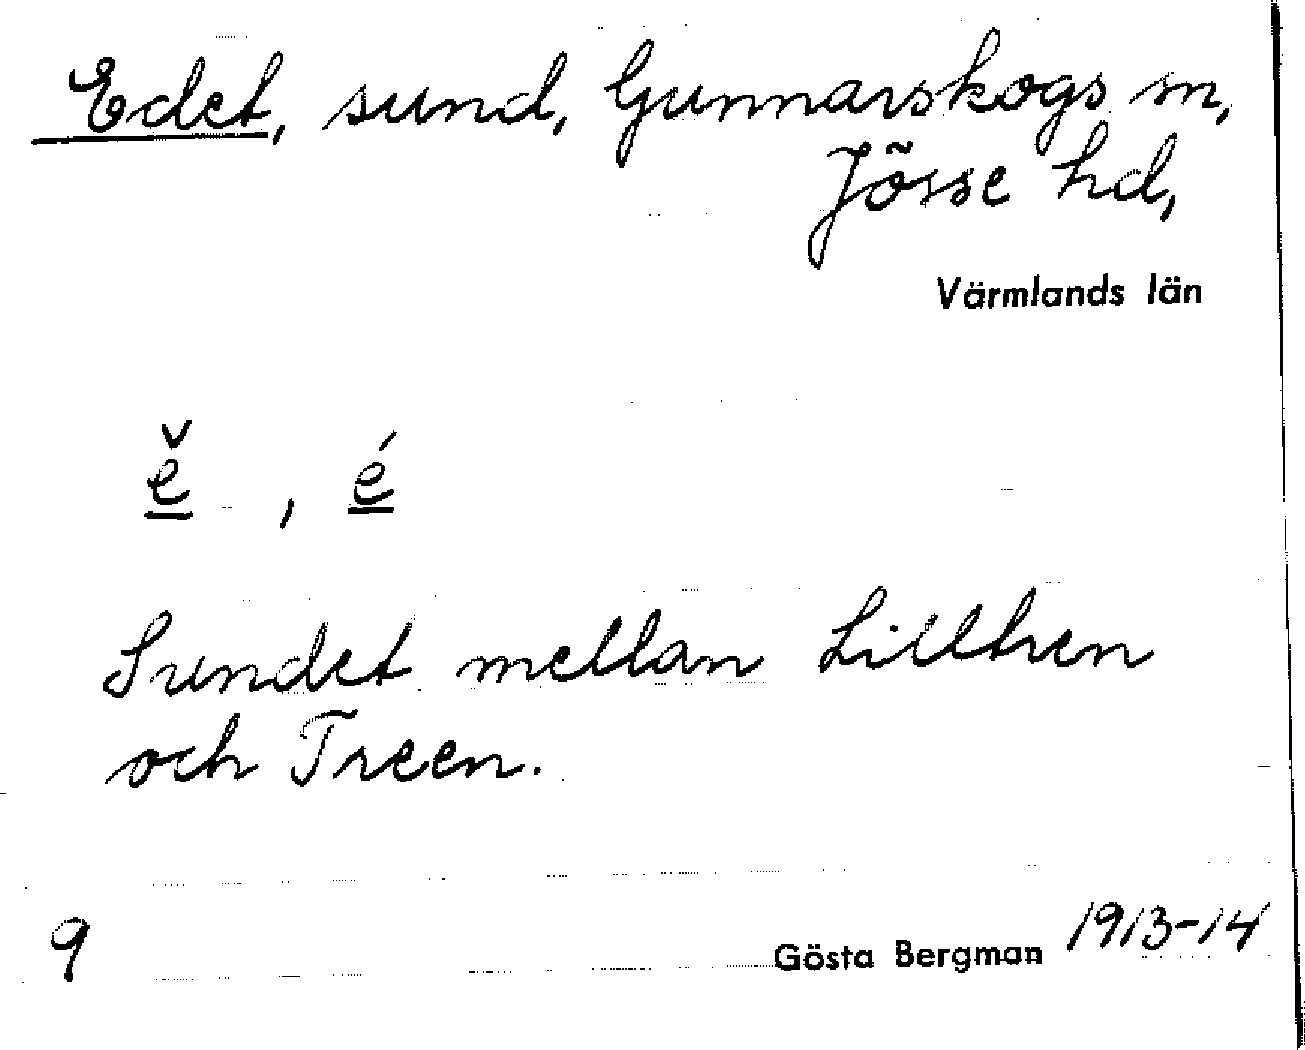 Edet, sund, Gunnarskogs sn,
Jösse hd,
Värmlands län
ě , é
Sundet mellan Lilltren
och Treen.
9
Gösta Bergman 1913-14